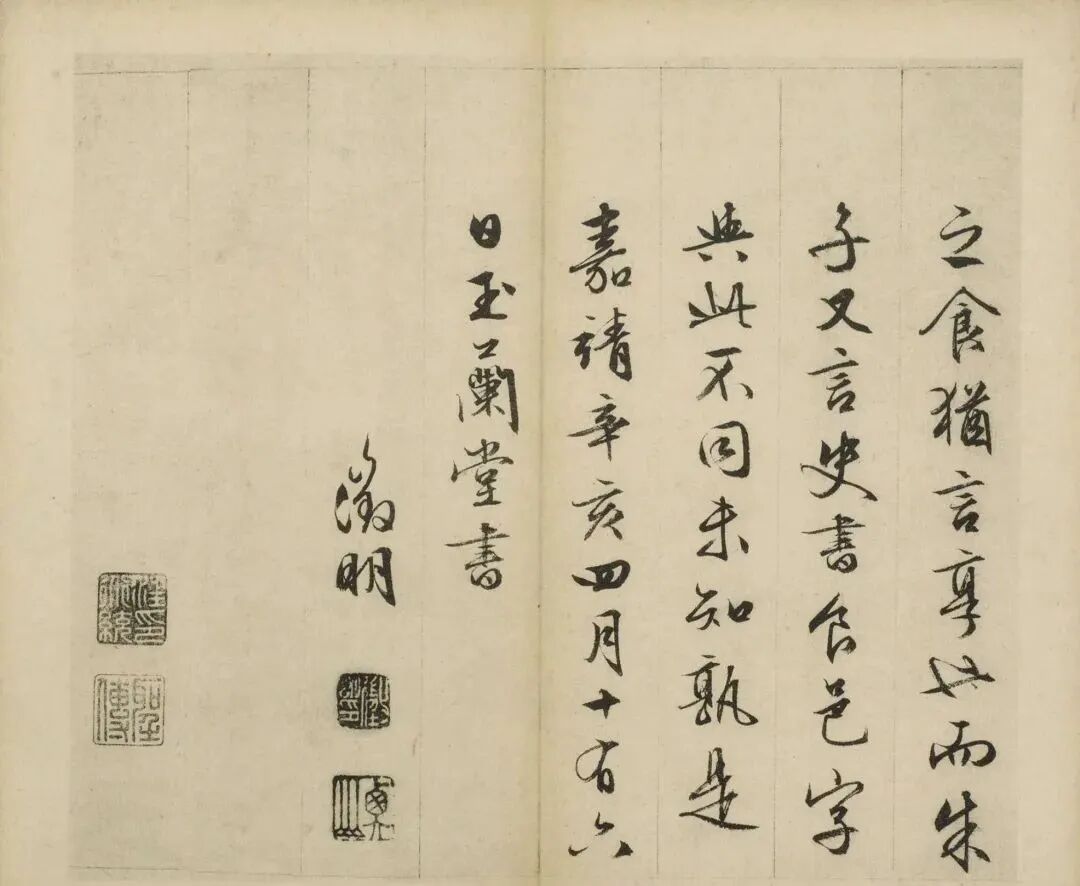 之食猶言享也而朱
子又言史書食邑字
與此不同未知孰是
嘉靖辛亥四月十有六
日玉蘭堂書
徵明